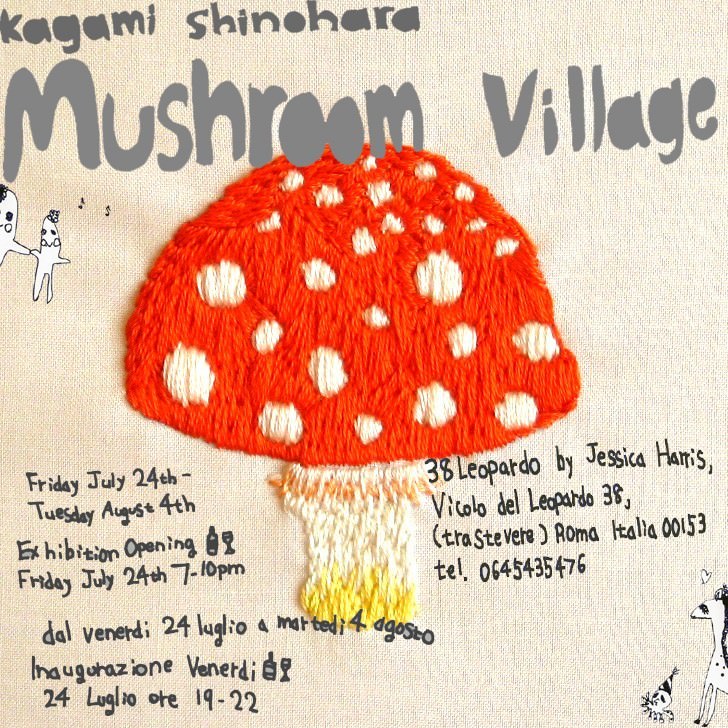 kagami shinohara
Mushroom Village
Friday July 24th -
Tuesday August 4th
Exhibition Opening
Friday July 24th 7-10pm
38 Leopardo by Jessica Harris,
Vicolo del Leopardo 38,
(trastevere) Roma Italia 00153
tel. 0645435476
dal venerdi 24 luglio a martedi 4 agosto
Inaugurazione Venerdi
24 Luglio ore 19-22